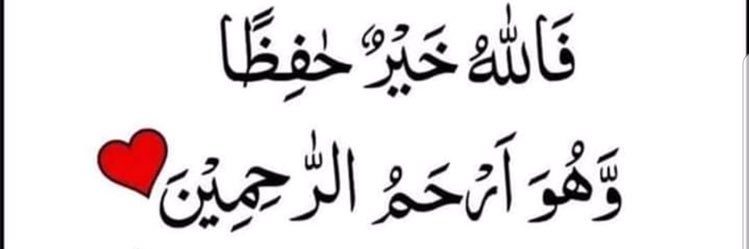 فَاللّٰهُ خَيْرٌ حٰفِظًا
وَّهُوَ اَرْحَمُ الرّٰحِمِيْنَ